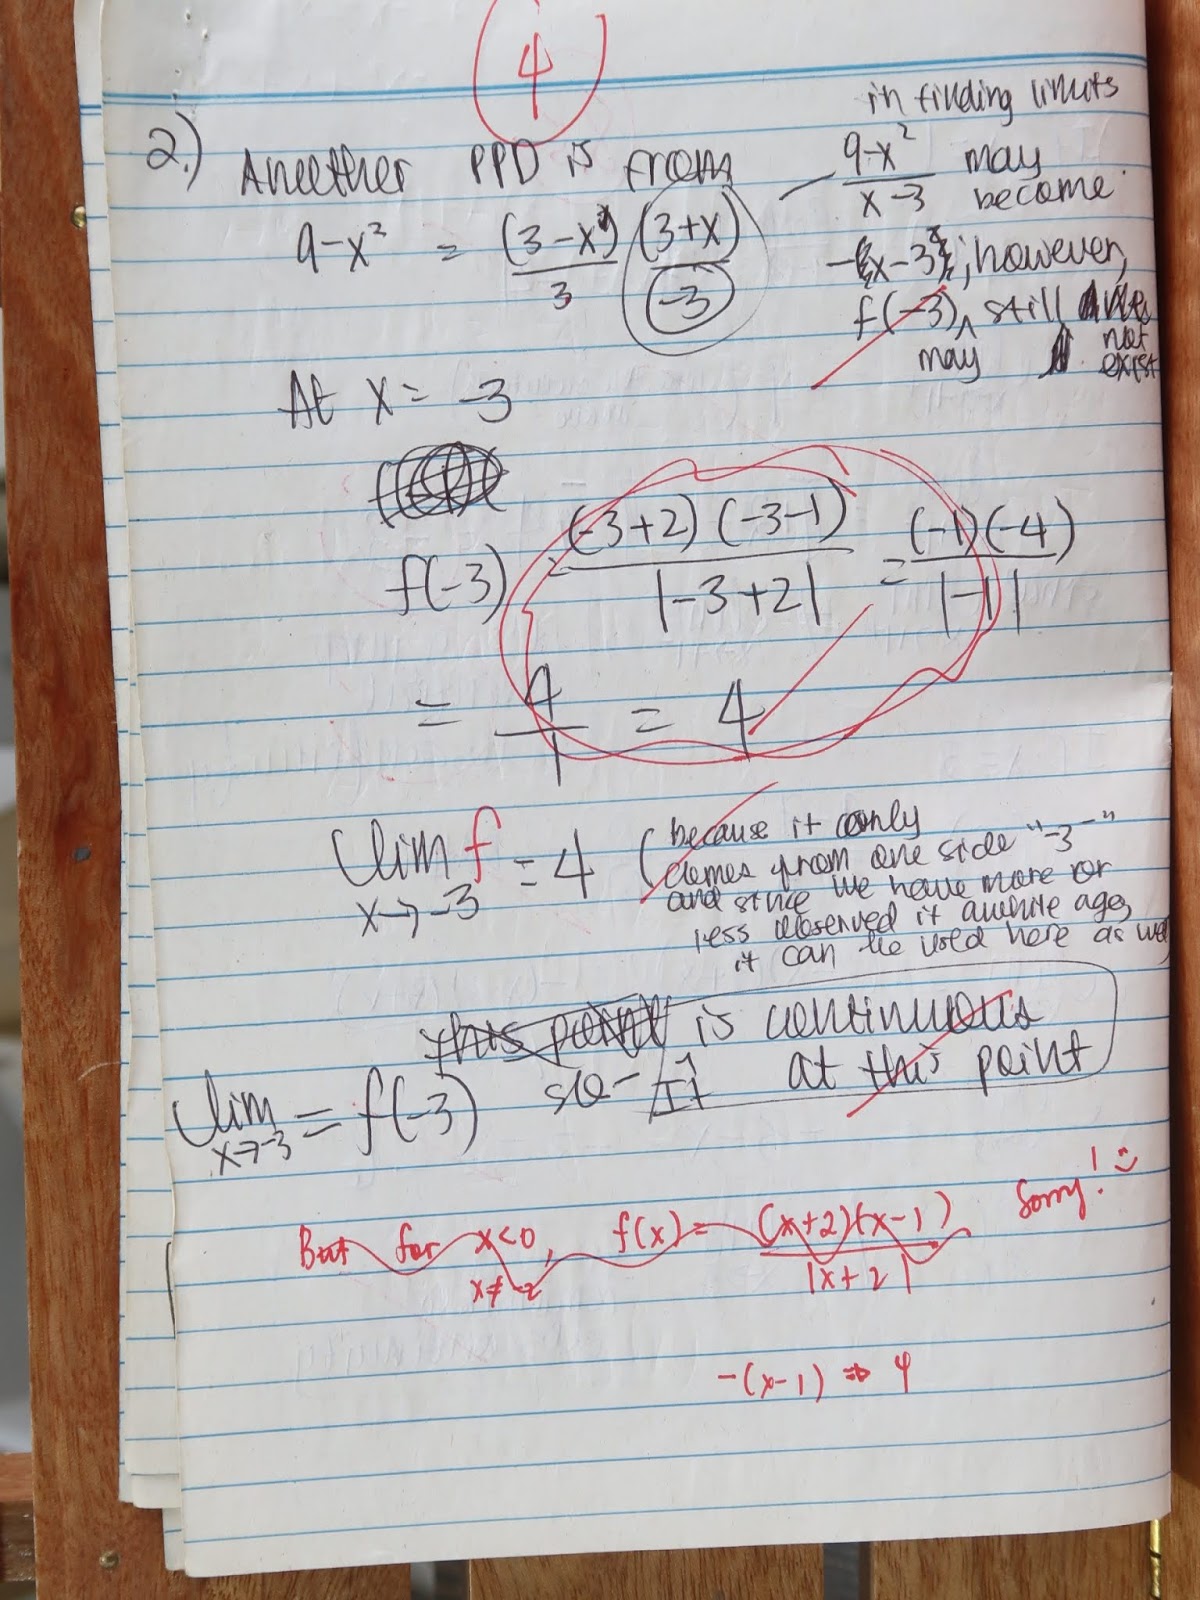 4
in finding limits
2.) Aneother PPD is from
9-x² / x-3 may become
9-x² = (3-x) (3+x)
3 -3
-(x-3); however,
f(-3) may still not exist
At x = -3
f(-3) = (-3+2)(-3-1) / |-3+2| = (-1)(-4) / |-1|
= 4/1 = 4
lim f = 4 (because it only
x→-3 comes from one side "-3⁻"
and since we have more or
less observed it awhile ago,
it can be used here as well
this point is continuous
lim = f(-3) so- It at this point
x→-3
But for x<0, f(x) = (x+2)(x-1) / |x+2| Sorry! :)
x≠-2
-(x-1) ⇒ 4